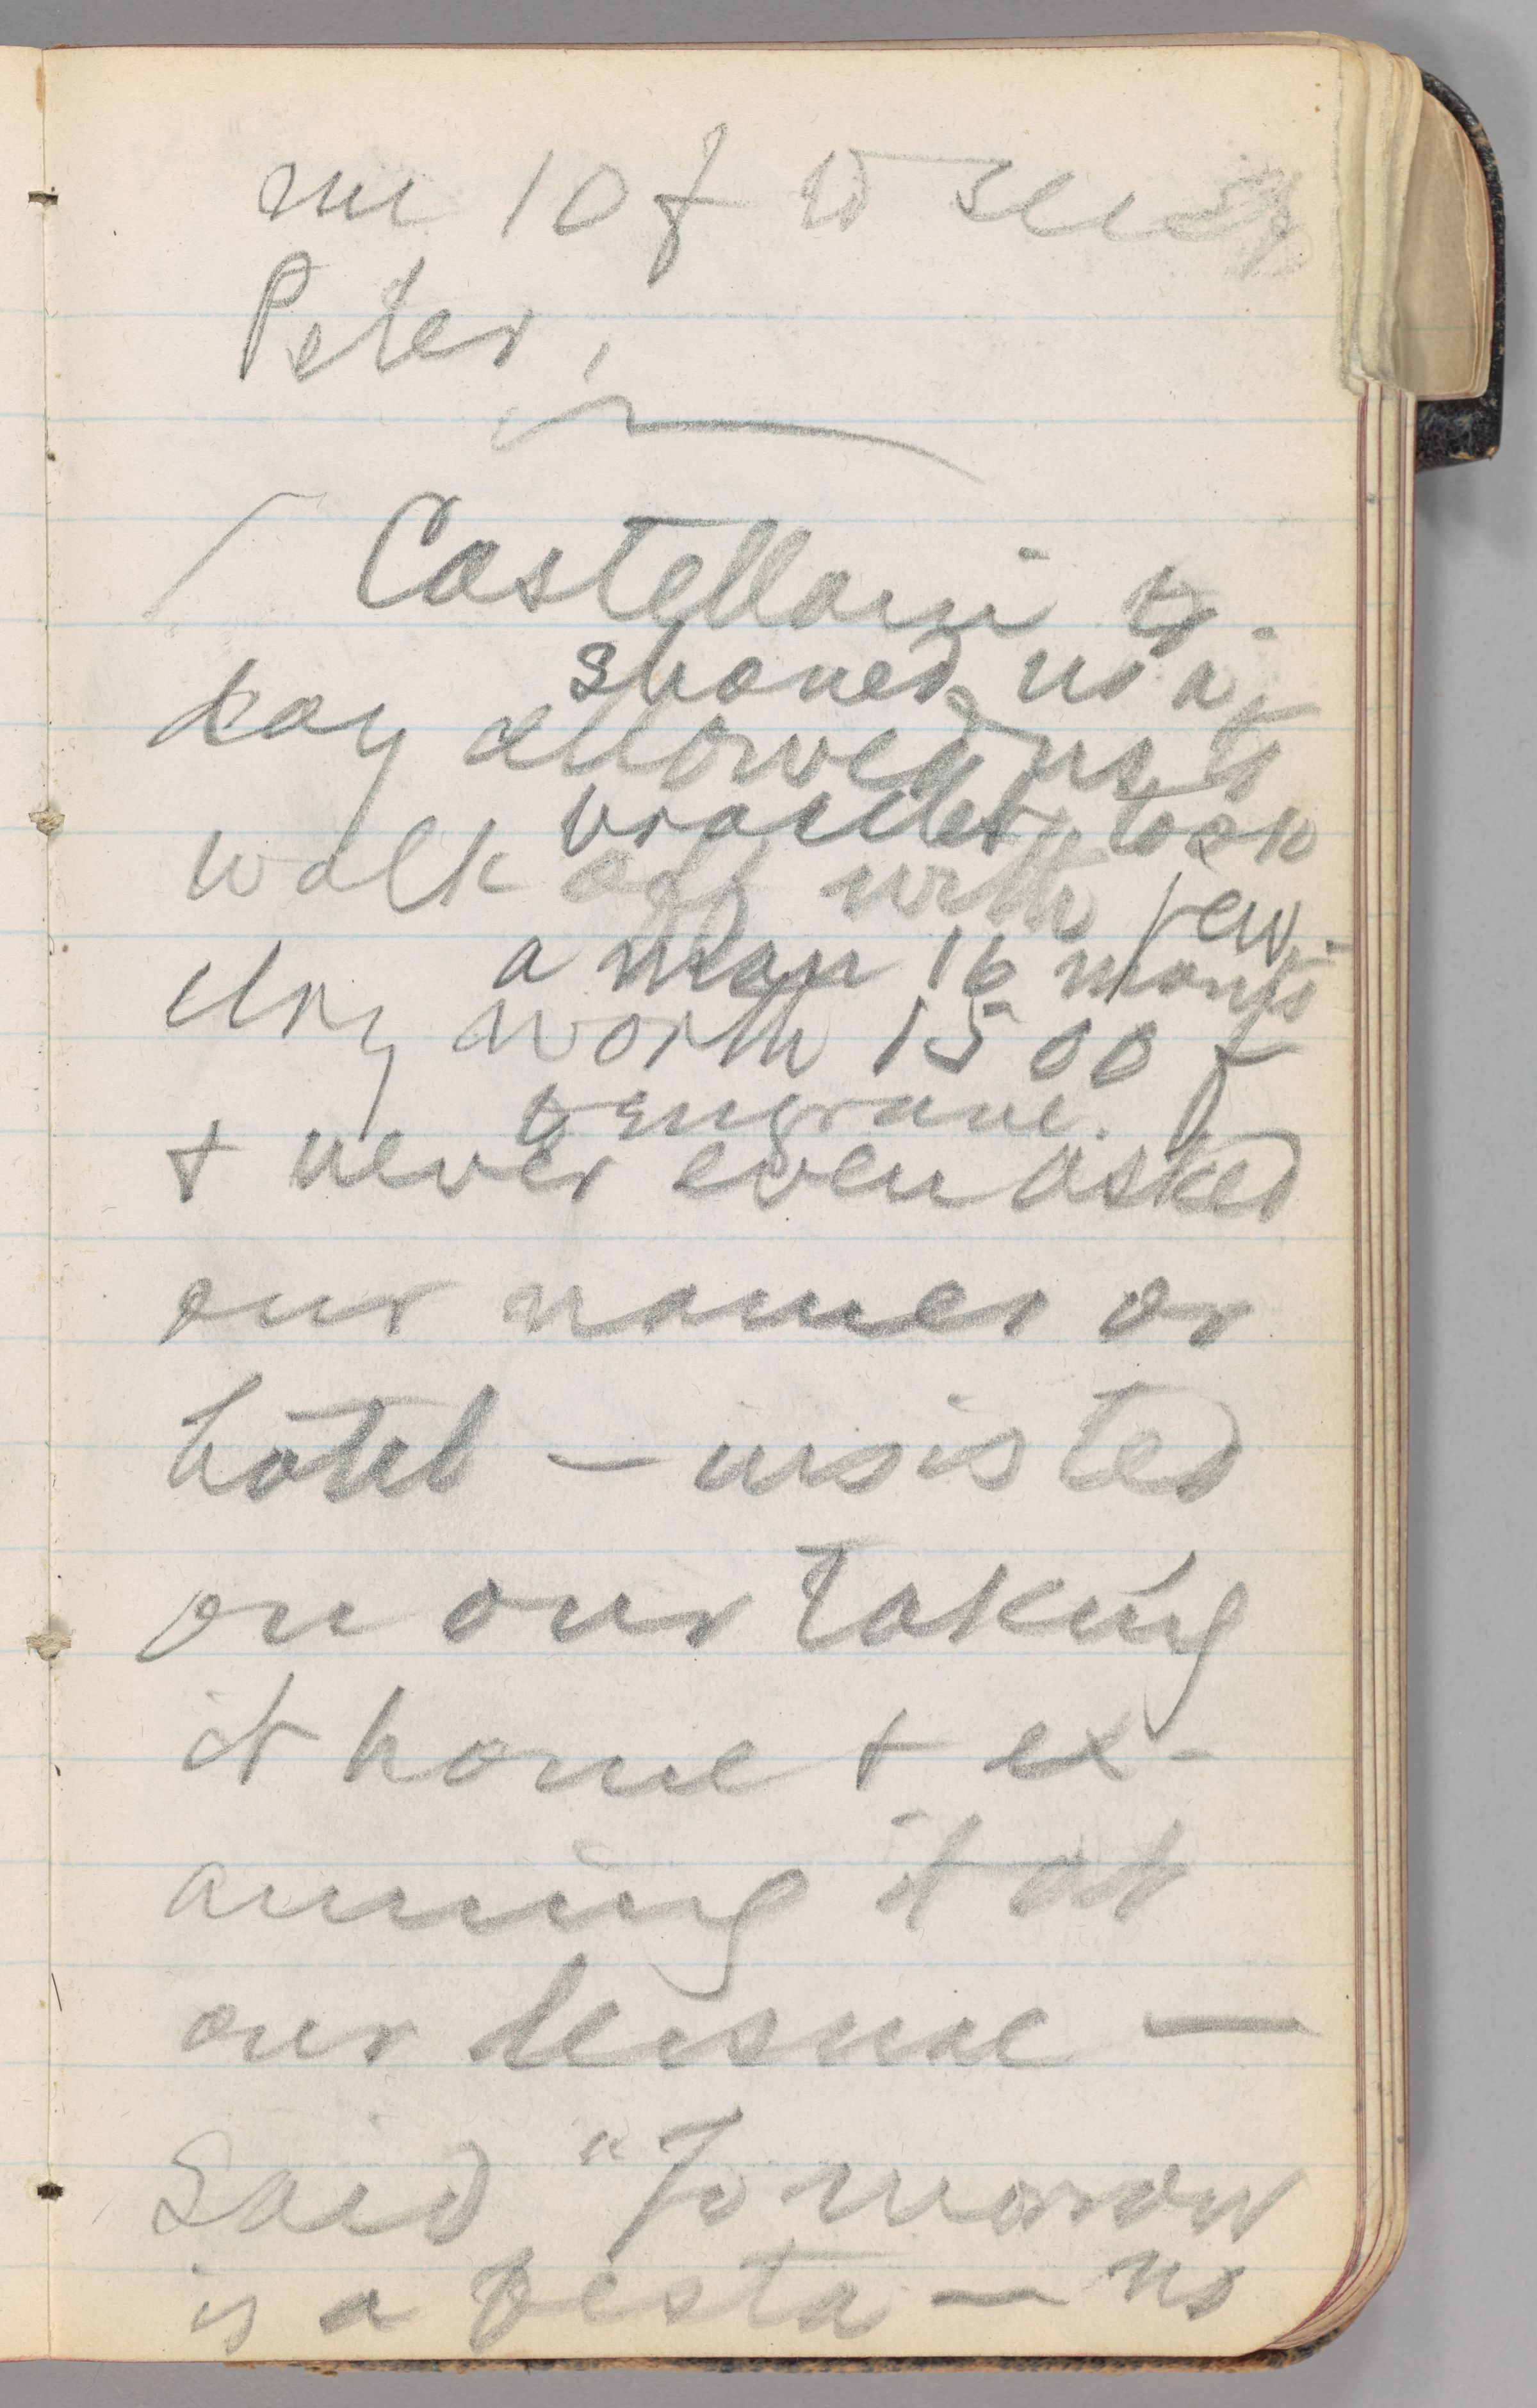 me 10 f to see St
Peter.
Castellani to-
showed us a
day allowed us to
bracelet, took
walk off with jew-
a man 16 months
elry worth 1500 f
to engrave.
+ never even asked
our names or
hotel — insisted
on our taking
it home + ex-
amining it at
our leisure —
Said "Tomorrow
is a festa — no